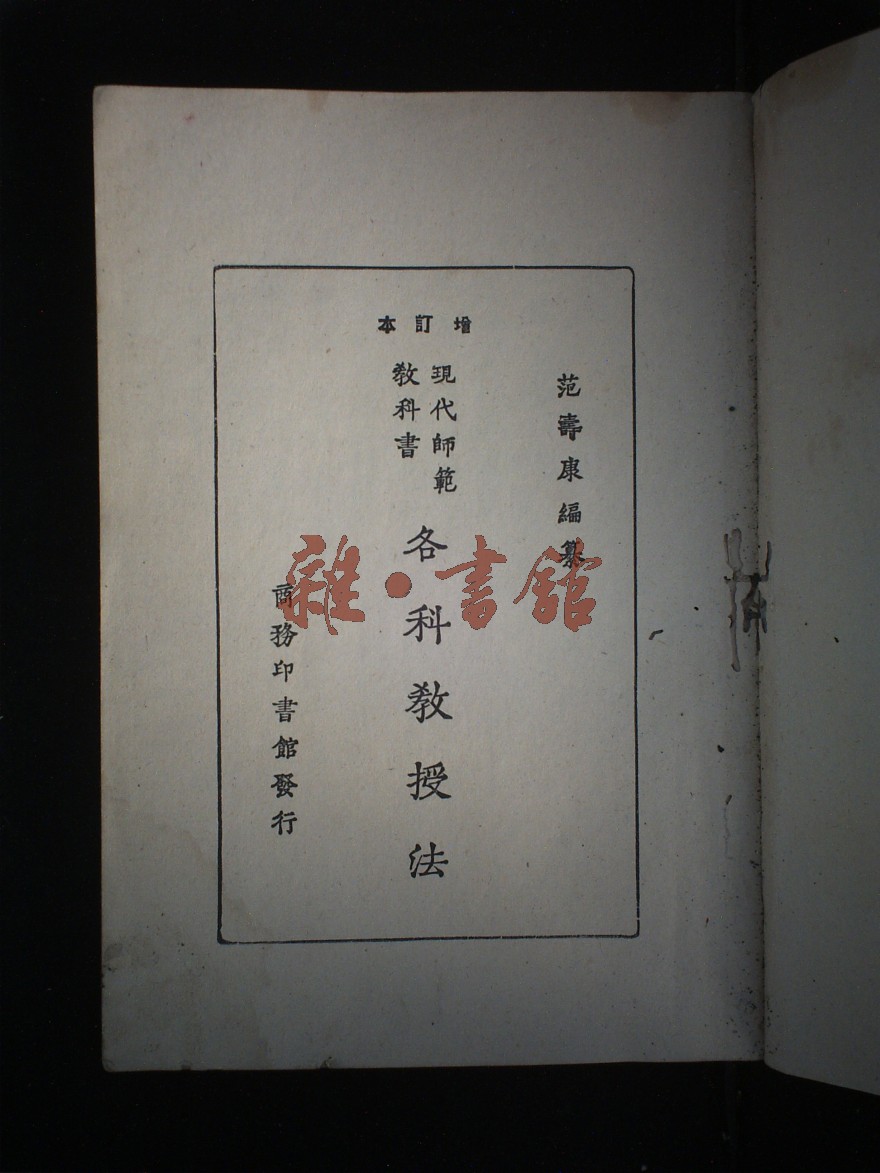 范壽康編纂
增訂本
現代師範
教科書
各科教授法
商務印書館發行
雜·書館